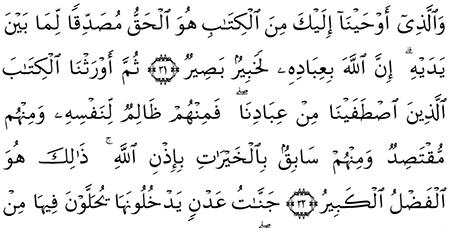 وَٱلَّذِىٓ أَوْحَيْنَآ إِلَيْكَ مِنَ ٱلْكِتَـٰبِ هُوَ ٱلْحَقُّ مُصَدِّقًا لِّمَا بَيْنَ
يَدَيْهِ ۗ إِنَّ ٱللَّهَ بِعِبَادِهِۦ لَخَبِيرٌۢ بَصِيرٌ ۝٣١ ثُمَّ أَوْرَثْنَا ٱلْكِتَـٰبَ
ٱلَّذِينَ ٱصْطَفَيْنَا مِنْ عِبَادِنَا ۖ فَمِنْهُمْ ظَالِمٌ لِّنَفْسِهِۦ وَمِنْهُم
مُّقْتَصِدٌ وَمِنْهُمْ سَابِقٌۢ بِٱلْخَيْرَٰتِ بِإِذْنِ ٱللَّهِ ۚ ذَٰلِكَ هُوَ
ٱلْفَضْلُ ٱلْكَبِيرُ ۝٣٢ جَنَّـٰتُ عَدْنٍ يَدْخُلُونَهَا يُحَلَّوْنَ فِيهَا مِنْ